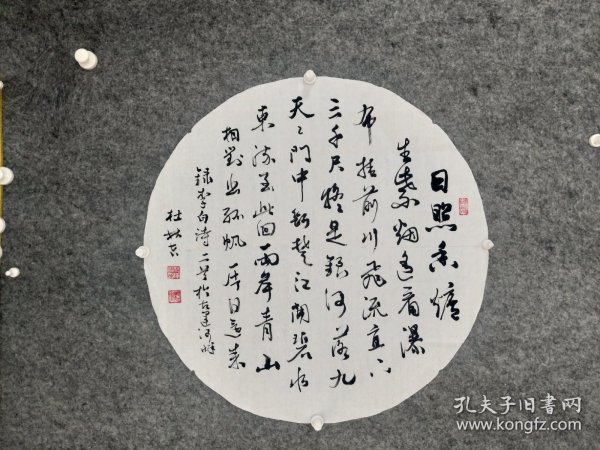 日照香爐
生紫烟遙看瀑
布挂前川飛流直下
三千尺疑是銀河落九
天天門中斷楚江開碧水
東流至此回兩岸青山
相對出孤帆一片日邊來
錄李白詩二首於
杜
孔夫子旧书网
www.kongfz.com